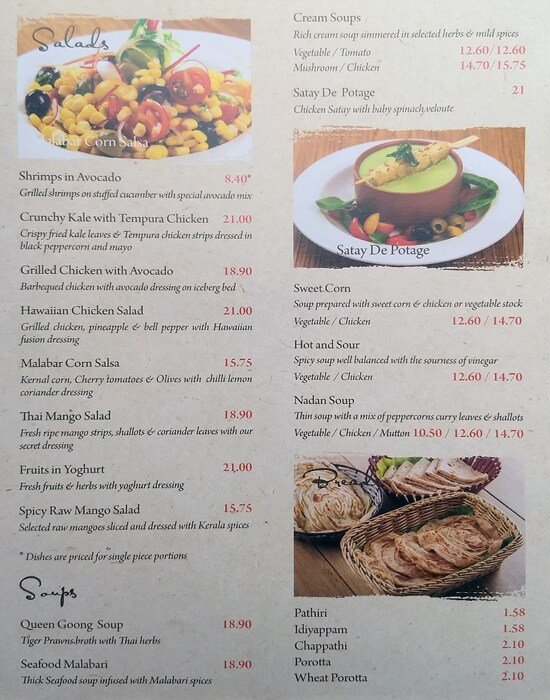 Salads
Malabar Corn Salsa
Shrimps in Avocado 8.40*
Grilled shrimps on stuffed cucumber with special avocado mix
Crunchy Kale with Tempura Chicken 21.00
Crispy fried kale leaves & Tempura chicken strips dressed in
black peppercorn and mayo
Grilled Chicken with Avocado 18.90
Barbequed chicken with avocado dressing on iceberg bed
Hawaiian Chicken Salad 21.00
Grilled chicken, pineapple & bell pepper with Hawaiian
fusion dressing
Malabar Corn Salsa 15.75
Kernal corn, Cherry tomatoes & Olives with chilli lemon
coriander dressing
Thai Mango Salad 18.90
Fresh ripe mango strips, shallots & coriander leaves with our
secret dressing
Fruits in Yoghurt 21.00
Fresh fruits & herbs with yoghurt dressing
Spicy Raw Mango Salad 15.75
Selected raw mangoes sliced and dressed with Kerala spices
* Dishes are priced for single piece portions
Soups
Queen Goong Soup 18.90
Tiger Prawns broth with Thai herbs
Seafood Malabari 18.90
Thick Seafood soup infused with Malabari spices
Cream Soups
Rich cream soup simmered in selected herbs & mild spices
Vegetable / Tomato 12.60/12.60
Mushroom / Chicken 14.70/15.75
Satay De Potage 21
Chicken Satay with baby spinach veloute
Satay De Potage
Sweet Corn
Soup prepared with sweet corn & chicken or vegetable stock
Vegetable / Chicken 12.60 / 14.70
Hot and Sour
Spicy soup well balanced with the sourness of vinegar
Vegetable / Chicken 12.60 / 14.70
Nadan Soup
Thin soup with a mix of peppercorns curry leaves & shallots
Vegetable / Chicken / Mutton 10.50 / 12.60 / 14.70
Bread
Pathiri 1.58
Idiyappam 1.58
Chappathi 2.10
Porotta 2.10
Wheat Porotta 2.10